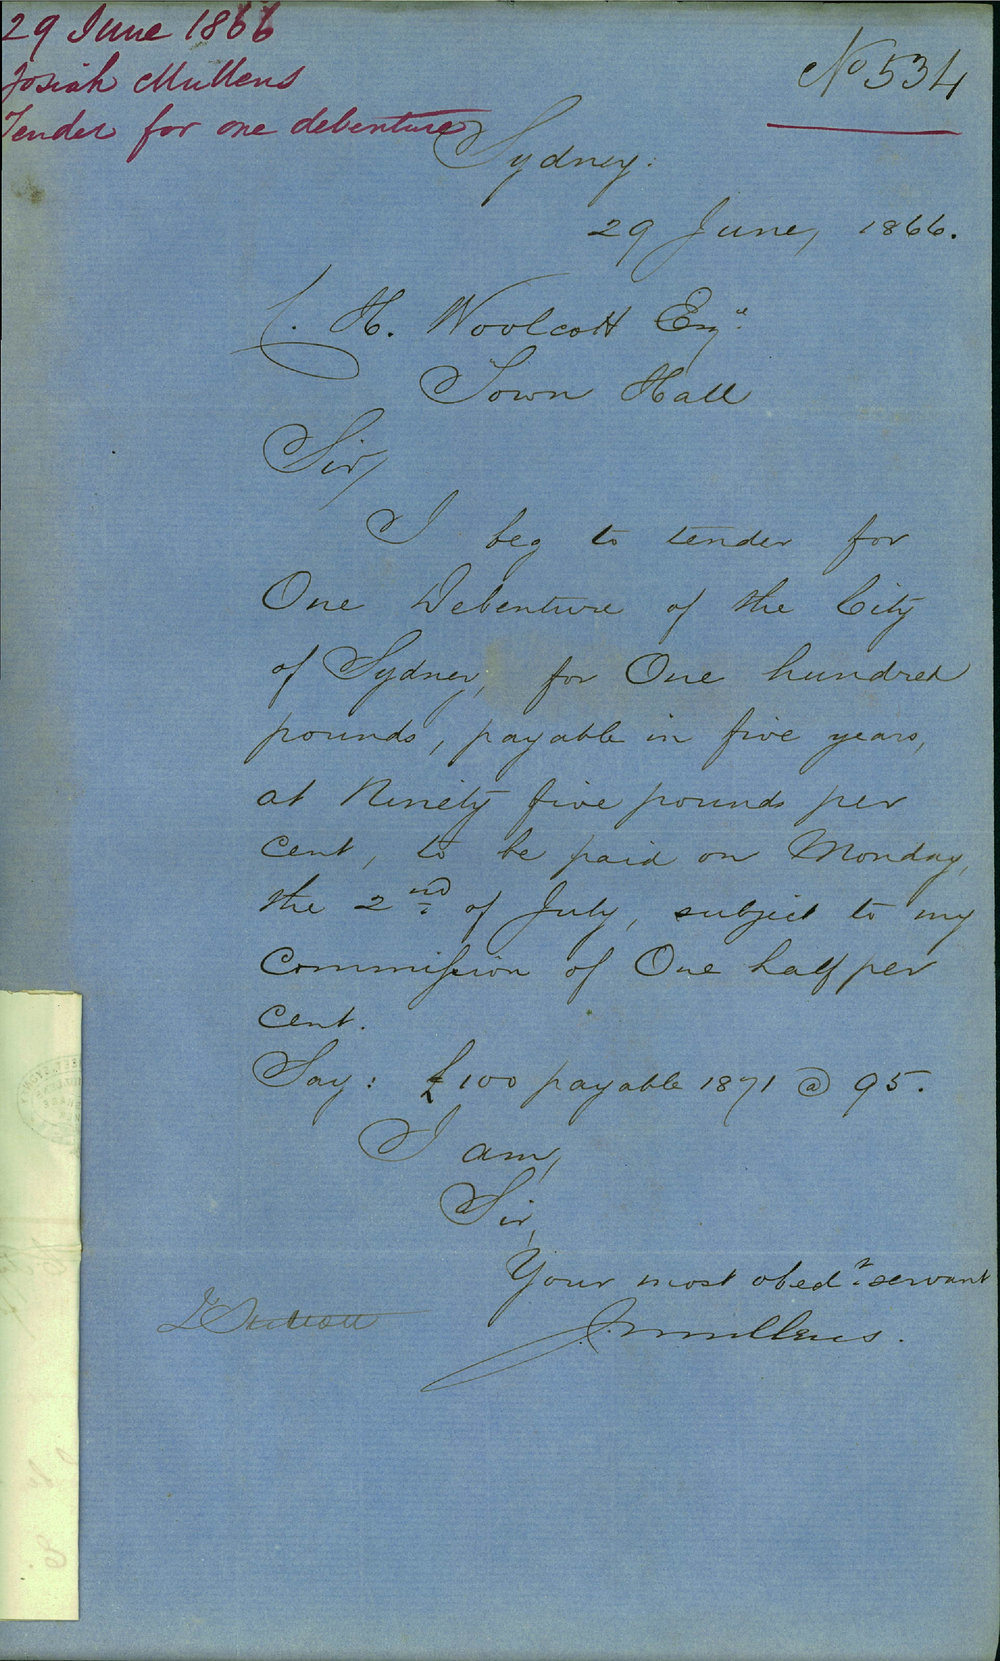 29 June 1866
Josiah Mullens
Tender for one debenture
No 534
Sydney.
29 June, 1866.
C. H. Woolcott Esqre
Town Hall
Sir,
I beg to tender for
One Debenture of the City
of Sydney, for One hundred
pounds, payable in five years,
at Ninety five pounds per
cent, to be paid on Monday,
the 2nd of July, subject to my
Commission of One half per
cent.
Say: £100 payable 1871 @ 95.
I am,
Sir,
Your most obedt servant
J. Mullens.